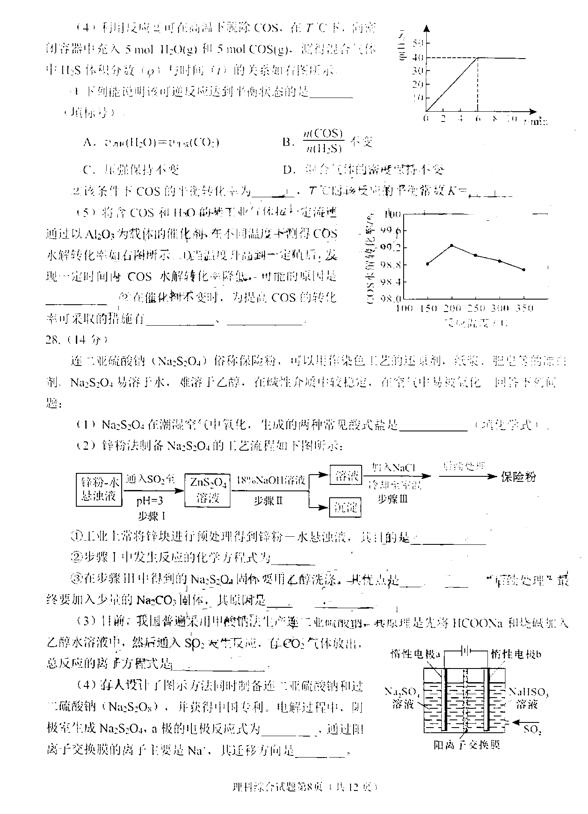 (4) 利用反应2可在高温下脱除COS，在T℃下，向密
闭容器中充入5 mol H₂O(g)和5 mol COS(g)，测得混合气体
中H₂S体积分数(φ)与时间(t)的关系如右图所示
下列能说明该可逆反应达到平衡状态的是
（填标号）
50
40
30
20
10
0 2 4 6 8 10 t/min
A．(H₂O)=(CO₂)
B．n(COS)/n(H₂S) 不变
C．压强保持不变
D．混合气体的密度保持不变
②该条件下COS的平衡转化率为，T℃时该反应的平衡常数K=
(5) 将含COS和H₂O的某工业气体按一定流速
通过以Al₂O₃为载体的催化剂，在不同温度下测得COS
水解转化率如右图所示。①当温度升高到一定值后，发
现一定时间内COS水解转化率降低，可能的原因是
②在催化剂不变时，为提高COS的转化
率可采取的措施有、
COS水解转化率/%
100
99.6
99.2
98.8
98.4
98.0
100 150 200 250 300 350
反应温度/℃
28.（14分）
连二亚硫酸钠（Na₂S₂O₄）俗称保险粉，可以用作染色工艺的还原剂，纸浆、肥皂等的漂白
剂。Na₂S₂O₄易溶于水，难溶于乙醇，在碱性介质中较稳定，在空气中易被氧化。回答下列问
题：
(1) Na₂S₂O₄在潮湿空气中氧化，生成的两种常见酸式盐是（填化学式）
(2) 锌粉法制备Na₂S₂O₄的工艺流程如下图所示：
锌粉-水悬浊液
通入SO₂至
pH=3
步骤Ⅰ
ZnS₂O₄溶液
18%NaOH溶液
步骤Ⅱ
溶液
沉淀
加入NaCl
冷却至室温
步骤Ⅲ
后续处理
保险粉
①工业上常将锌块进行预处理得到锌粉－水悬浊液，其目的是
②步骤Ⅰ中发生反应的化学方程式为
③在步骤Ⅲ中得到的Na₂S₂O₄固体要用乙醇洗涤，其优点是“后续处理”最
终要加入少量的Na₂CO₃固体，其原因是
(3) 目前，我国普遍采用甲酸钠法生产连二亚硫酸钠，其原理是先将HCOONa和烧碱加入
乙醇水溶液中，然后通入SO₂发生反应，有CO₂气体放出，
总反应的离子方程式是
(4) 有人设计了图示方法同时制备连二亚硫酸钠和过
二硫酸钠（Na₂S₂O₈），并获得中国专利。电解过程中，阴
极室生成Na₂S₂O₄，a极的电极反应式为，通过阳
离子交换膜的离子主要是Na⁺，其迁移方向是。
惰性电极a
惰性电极b
Na₂SO₄溶液
NaHSO₃溶液
SO₂
阳离子交换膜
理科综合试题第8页（共12页）